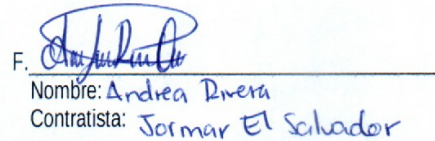 F.
Nombre: Andrea Rivera
Contratista: Jormar El Salvador